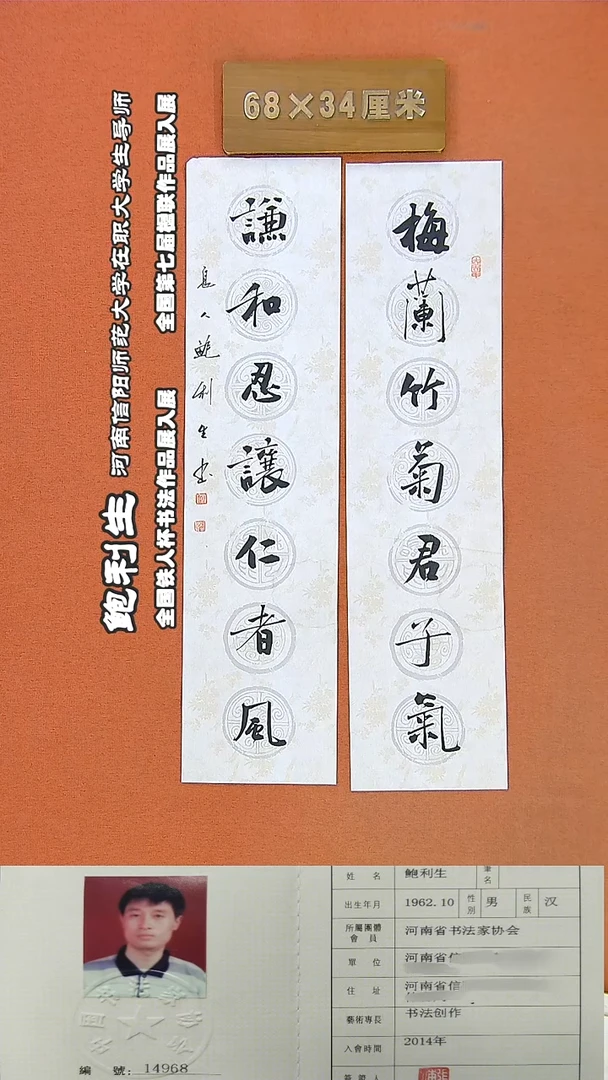 68×34厘米
梅蘭竹菊君子氣
謙和忍讓仁者風
息人鮑利生书
鲍利生 河南信阳师范大学在职大学生导师
全国铁人杯书法作品展入展 全国第七届楹联作品展入展
姓名 鲍利生 筆名
出生年月 1962.10 性別 男 民族 汉
所屬團體會員 河南省书法家协会
單位 河南省信
住址 河南省信
藝術專長 书法创作
入會時間 2014年
簽證人
編號：14968